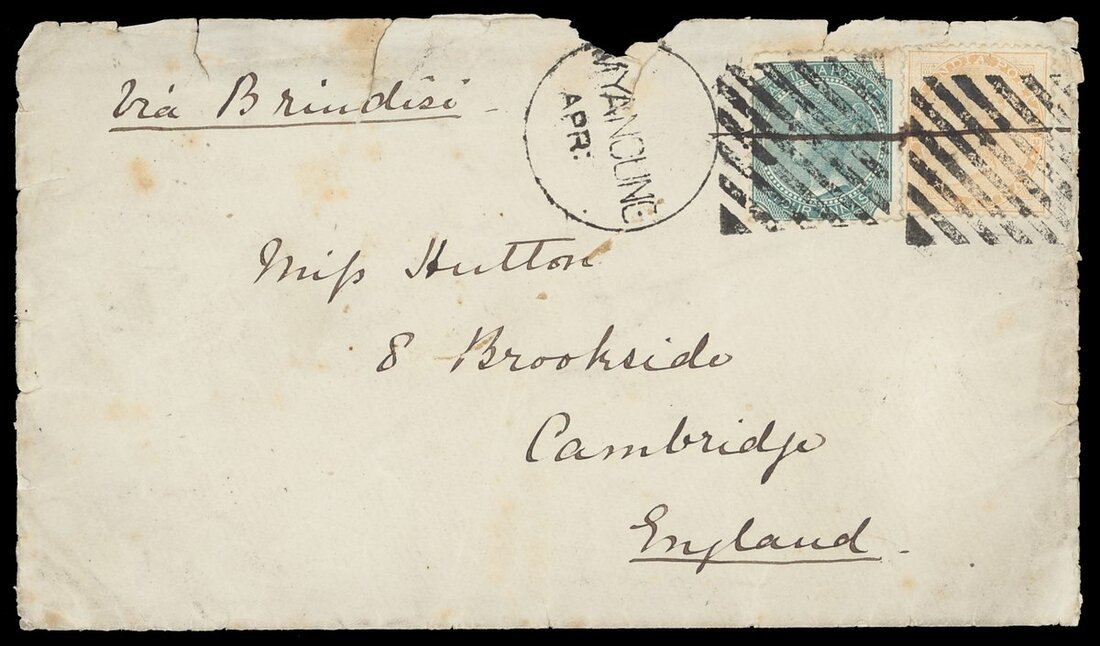 Viâ Brindisi
MYANOUNG
APR:
INDIA POSTAGE
INDIA PO
Miſs Hutton
8 Brookside
Cambridge
England